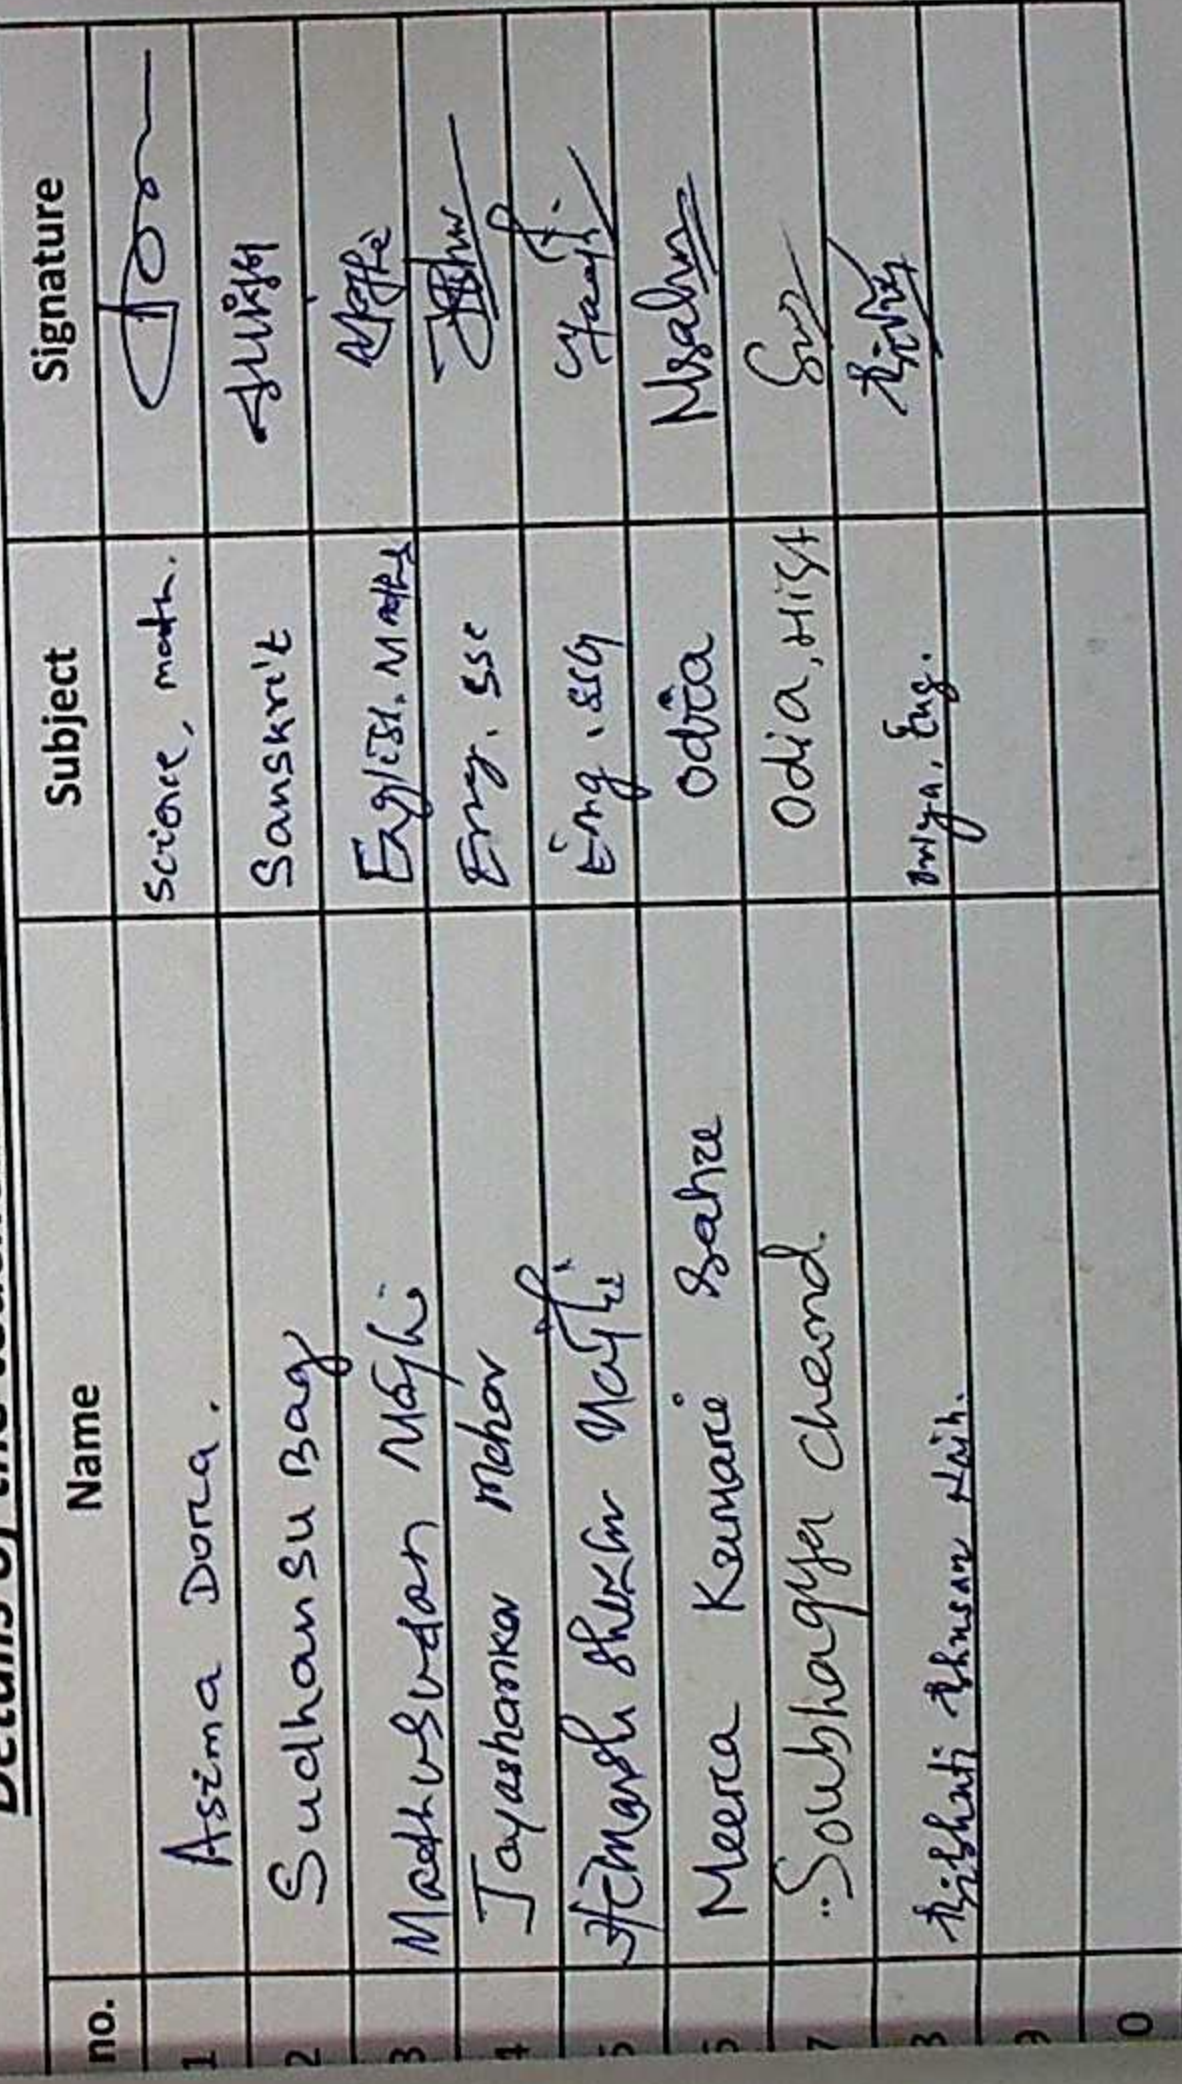 Details of the
no. Name Subject Signature
1 Asima Dora. Science, math.
2 Sudhansu Bag Sanskrit
3 Madhusudan Majhi English. Maths
4 Jayashankar Meher Eng. SSC
5 Himanshu Shekhar Majhi Eng. SSC
6 Meera Kumari Sahu Odia Msahu
7 Soubhagya Chand. Odia, Hist
8 Bibhuti Bhusan Naik. Eng.
9
0